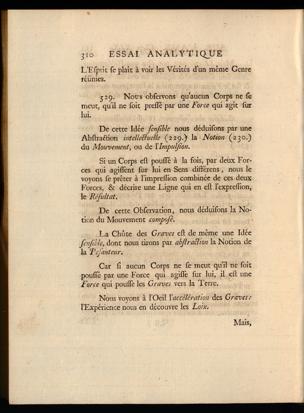 310 ESSAI ANALYTIQUE
L'Esprit se plait à voir les Vérités d'un même Genre
réunies.
329. Nous observons qu'aucun Corps ne se
meut, qu'il ne soit pressé par une Force qui agit sur
lui.
De cette Idée sensible nous déduisons par une
Abstraction intellectuelle (229.) la Notion (230.)
du Mouvement, ou de l'Impulsion.
Si un Corps est poussé à la fois, par deux For-
ces qui agissent sur lui en Sens différens, nous le
voyons se prêter à l'impression combinée de ces deux
Forces, & décrire une Ligne qui en est l'expression,
le Résultat.
De cette Observation, nous déduisons la No-
tion du Mouvement composé.
La Chûte des Graves est de même une Idée
sensible, dont nous tirons par abstraction la Notion de
la Pesanteur.
Car si aucun Corps ne se meut qu'il ne soit
poussé par une Force qui agisse sur lui, il est une
Force qui pousse les Graves vers la Terre.
Nous voyons à l'Oeil l'accélération des Graves:
l'Expérience nous en découvre les Loix.
Mais,